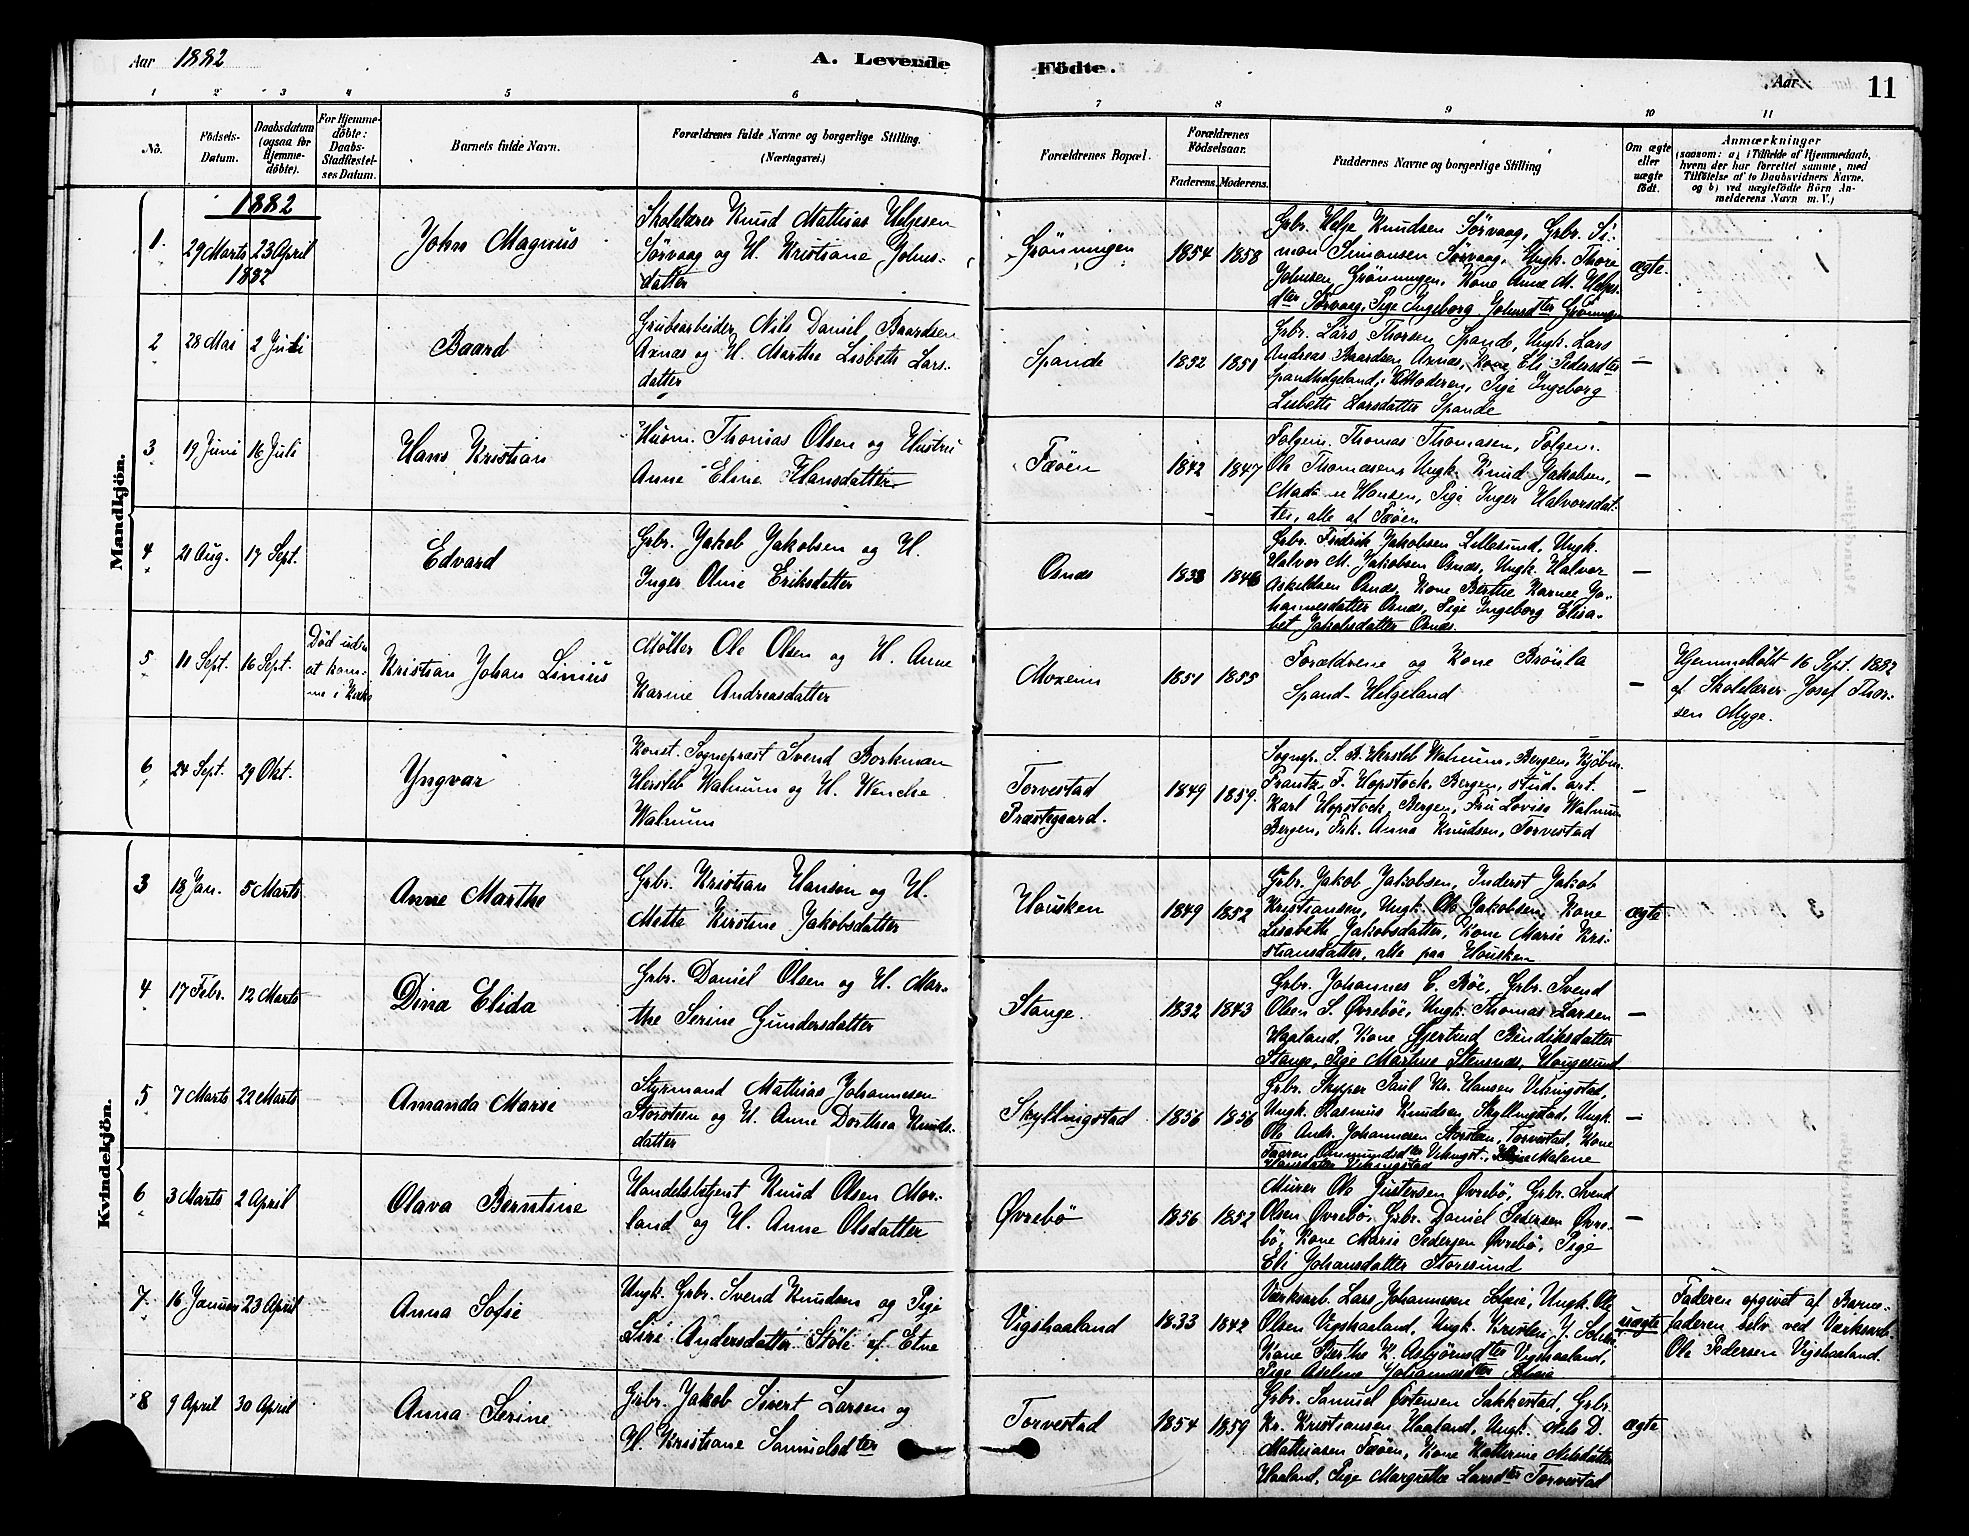 Aar 1882
A. Levende Födte.
Aar
11
1 2 3 4 5 6 7 8 9 10 11
No.
Födsels-
Datum.
Daabsdatum
(ogsaa for
Hjemme-
döbte).
For Hjemme-
döbte:
Daabs-
Stadfæstel-
ses Datum.
Barnets fulde Navn.
Forældrenes fulde Navne og borgerlige Stilling.
(Næringsvei.)
Forældrenes Bopæl.
Forældrenes
Födselsaar.
Faderens. Moderens.
Faddernes Navne og borgerlige Stilling
Om ægte
eller
uægte
födt.
Anmærkninger
(saasom: a) i Tilfælde af Hjemmedaab,
hvem der har forrettet samme, med
Tilföielse af to Daabsvidners Navne,
og b) ved uægtefödte Börn An-
melderens Navn m. V.)
Mandkjön.
1882
1
29 Marts 23 April
1882
John Magnus
Skolelærer Knud Mathias Helgesen
Sørvaag og H. Kristiane Johns-
datter
Grønningen
1854 1858
Grbr. Helge Knudsen Sørvaag, Grbr. Si-
mon Simonsen Sørvaag, Ungk. Thore
Johnsen Grønningen, Kone Anne M. Helges-
dter Sørvaag, Pige Ingeborg Johnsdter Grønningen
ægte.
2
28 Mai 2 Juli
Baard
Grubearbeider Nils Daniel Baardsen
Aznas og H. Marthe Lisbeth Lars-
datter
Spande
1852 1851
Grbr. Lars Thorsen Spande, Ungk. Lars
Andreas Baardsen Aznas, Kone Eli Pedersdter
Spandhelgeland, Moderen, Pige Ingeborg
Lisbeth Larsdatter Spande
—
3
19 Juni 16 Juli
Hans Kristian
Husm. Thomas Olsen og Hustru
Anne Eline Hansdatter
Føøen
1842 1847
Folgem. Thomas Thomasen, Folgem.
Ole Thomasen, Ungk. Knud Jakobsen,
Hansen, Pige Inger Halvorsdat-
ter, alle af Føøen
—
4
21 Aug. 17 Sept.
Edvard
Grbr. Jakob Jakobsen og H.
Inger Oline Eriksdatter
Osnes
1838 1846
Grbr. Fredrik Jakobsen Lillesund, Ungk.
Halvor M. Jakobsen Osnes, Ungk. Halvor
Askeldsen Osnes, Kone Berthe Karine Jo-
hannesdatter Osnes, Pige Ingeborg Elisa-
bet Jakobsdatter Osnes
—
5
11 Sept. 16 Sept.
Død uden
at kom-
me i Kirke
Kristian Johan Linius
Møller Ole Olsen og H. Anne
Karine Andreasdatter
Moxeim
1851 1855
Forældrene og Kone Brønla
Spand-Helgeland
—
Hjemmedøbt 16 Sept. 1882
af Skolelærer Josef Thor-
sen Myge.
6
24 Sept. 29 Okt.
Yngvar
Konst. Sogneprest Svend Borkman
Hersleb Walnum og H. Wenche
Walnum
Torvestad
Præstegaard.
1849 1859.
Sognep. S. B. Hersleb Walnum, Bergen, Kjöbm.
Frantz F. Hopstock, Bergen, stud. art.
Karl Hopstock, Bergen, Fru Lovise Walnum
Bergen, Frk. Anna Knudsen, Torvestad
—
Kvindekjön.
3
18 Jan. 5 Marts
Anne Marthe
Grbr. Kristian Hansen og H.
Mette Kirstine Jakobsdatter
Housken
1849 1852
Grbr. Jakob Jakobsen, Inderst Jakob
Kristiansen, Ungk. Ole Jakobsen, Kone
Lisabeth Jakobsdatter, Kone Marie Kri-
stiansdatter, alle paa Housken
ægte
4
17 Febr. 12 Marts
Dina Elida
Grbr. Daniel Olsen og H. Mar-
the Serine Gundersdatter
Stange.
1832 1843
Grbr. Johannes C. Bøe, Grbr. Svend
Olsen S. Øvrebøe, Ungk. Thomas Larsen
Haaland, Kone Gjertrud Bendiksdatter
Stange, Pige Martine Stensnes, Haugesund
—
5
7 Marts 22 Marts
Amanda Marie
Styrmand Mathias Johannesen
Storsten og H. Anne Dorthea Knuds-
datter
Skyllingstad
1856 1856
Grbr. Skipper Paul Kr. Hansen Vikingstad,
Ungk. Rasmus Knudsen, Skyllingstad, Ungk.
Ole Andr. Johannesen Storsten, Torvestad, Kone
Taaren Omundsdter Vikingst., Malene
Hansdatter Vikingstad
—
6
3 Marts 2 April
Olava Berntine
Handelsbetjent Knud Olsen Mor-
land og H. Anne Olsdatter
Øvrebø
1856 1852
Murer Ole Gustersen Øvrebø, Grbr. Svend
Olsen Øvrebø, Grbr. Daniel Pedersen Øvre-
bø, Kone Marie Pedersen Øvrebø, Pige
Eli Johansdatter Storesund
—
7.
16 Januar 23 April
Anna Sofie
Ungk. Grbr. Svend Knudsen og Pige
Siri Andersdatter Støle af Etne
Vigshaaland
1833 1842
Værksarb. Lars Johannesen, Ungk. Ole
Olsen Vigshaaland, Ungk. Kristen J.
Kone Berthe K. Asbjørnsdter Vigshaaland,
Pige Aseline Johannesdter
uægte
Faderen opgivet af Barne-
faderen selv ved Værksarb.
Ole Pedersen Vigshaaland.
8
9 April 30 April
Anna Serine
Grbr. Jakob Sivert Larsen og
H. Kristiane Samuelsdter
Torvestad
1854 1859
Grbr. Samuel Østensen Sakkestad, Grbr.
Kr. Kristiansen Haaland, Ungk. Nils D.
Mathiasen Føøen, Kone Katherine Nilsdatter
Haaland, Pige Margrethe Larsdter Torvestad
ægte